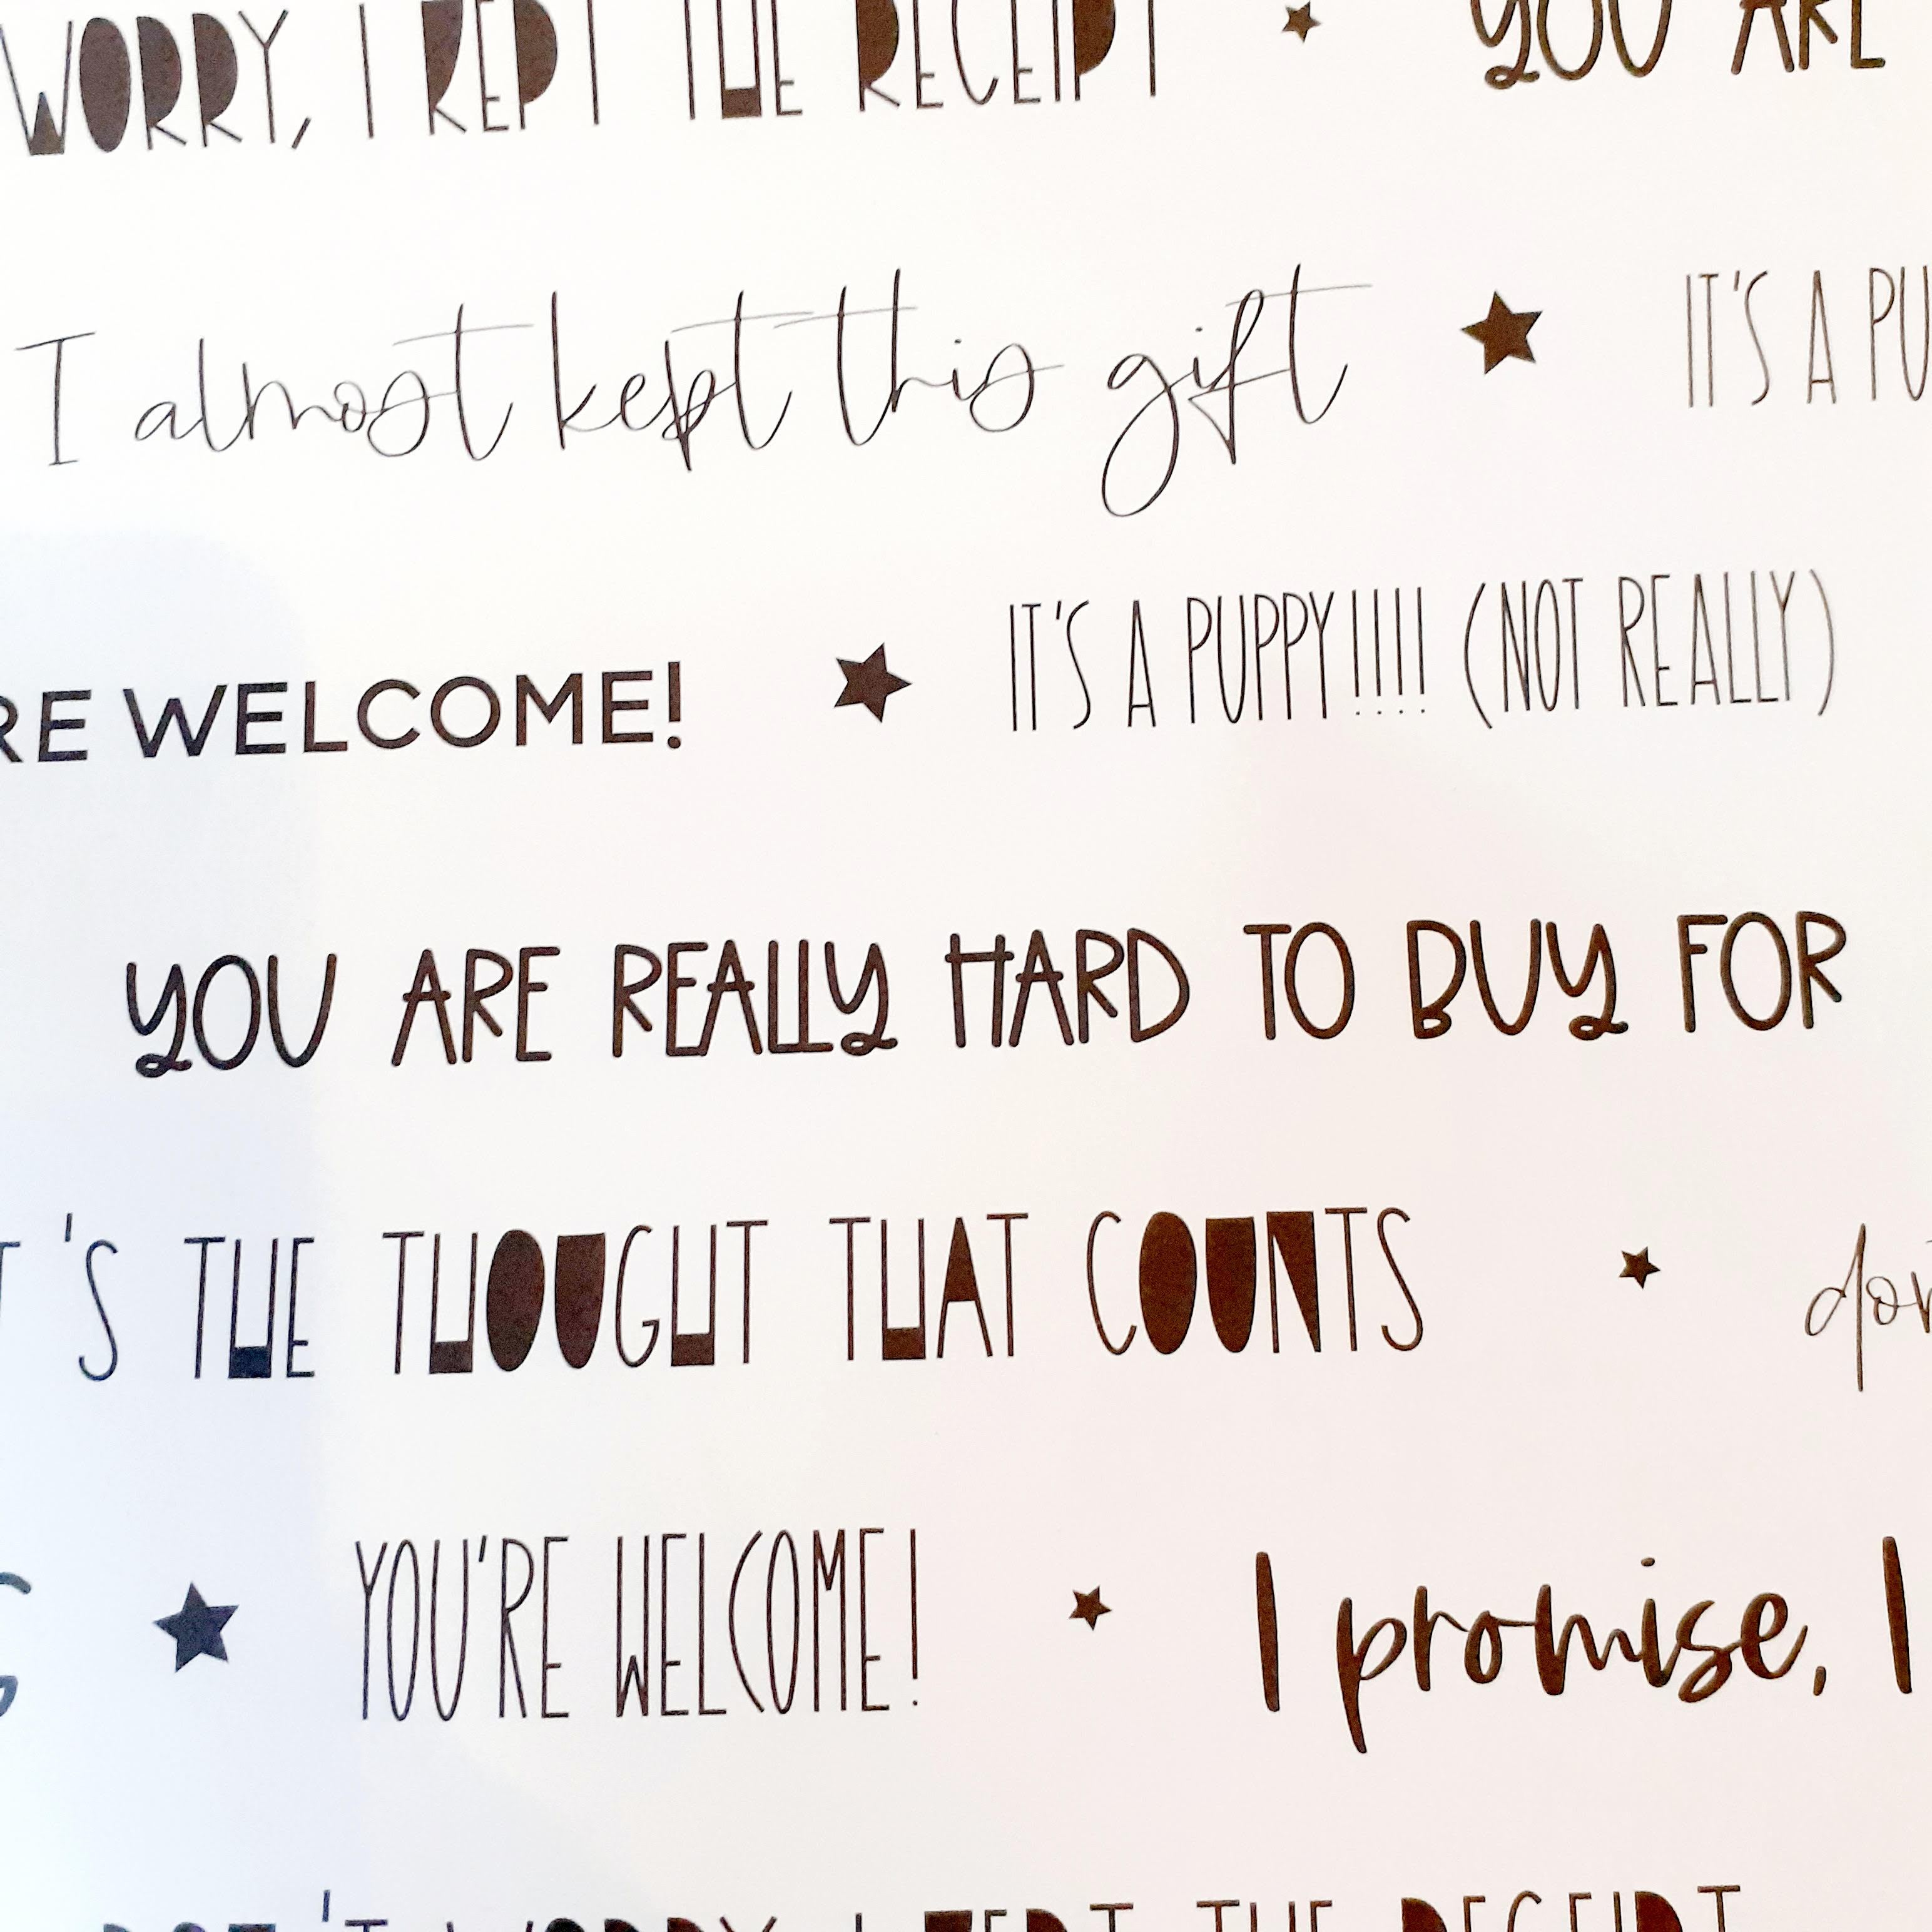 WORRY, I KEPT THE RECEIPT ★ YOU ARE
I almost kept this gift ★ IT'S A PU
RE WELCOME! ★ IT'S A PUPPY!!!! (NOT REALLY)
YOU ARE REALLY HARD TO BUY FOR
T'S THE THOUGHT THAT COUNTS ★ don
★ YOU'RE WELCOME! ★ I promise, I
DON'T WORRY, I KEPT THE RECEIPT